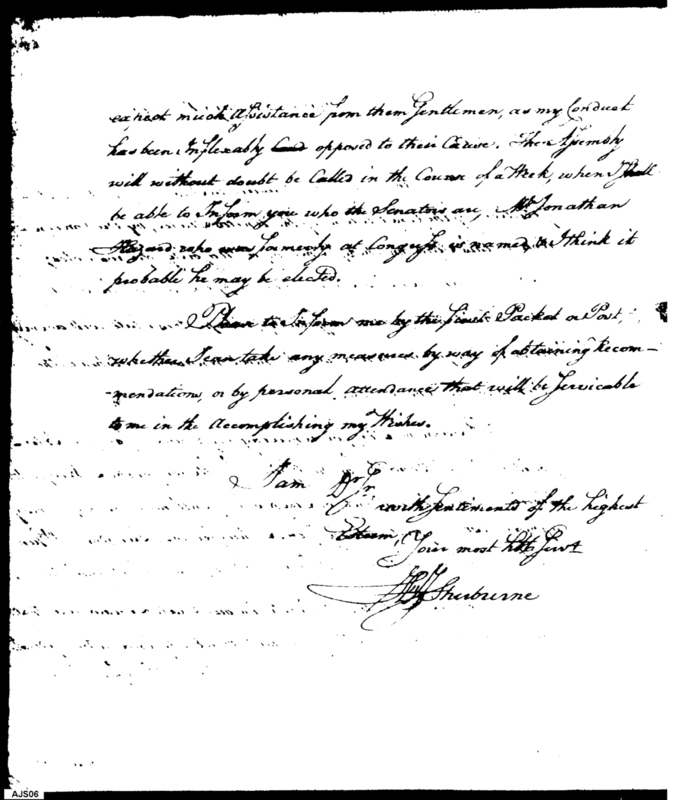 expect much Assistance from them Gentlemen, as my Conduct
has been Inflexably opposed to their Cause. The Assembly
will without doubt be Called in the Course of a Week, when I shall
be able to Inform you who the Senators are. Mr Jonathan
Hazard who was formerly at Congress is named & I think it
probable he may be elected.
Please to Inform me by the first Packet or Post,
whether I can take any measures by way of obtaining Recom-
-mendations, or by personal attendance that will be Servicable
to me in the Accomplishing my Wishes.
I am Dr Sr
with Sentiments of the highest
Esteem, Your most hble Servt
Hy Sherburne
AJS06